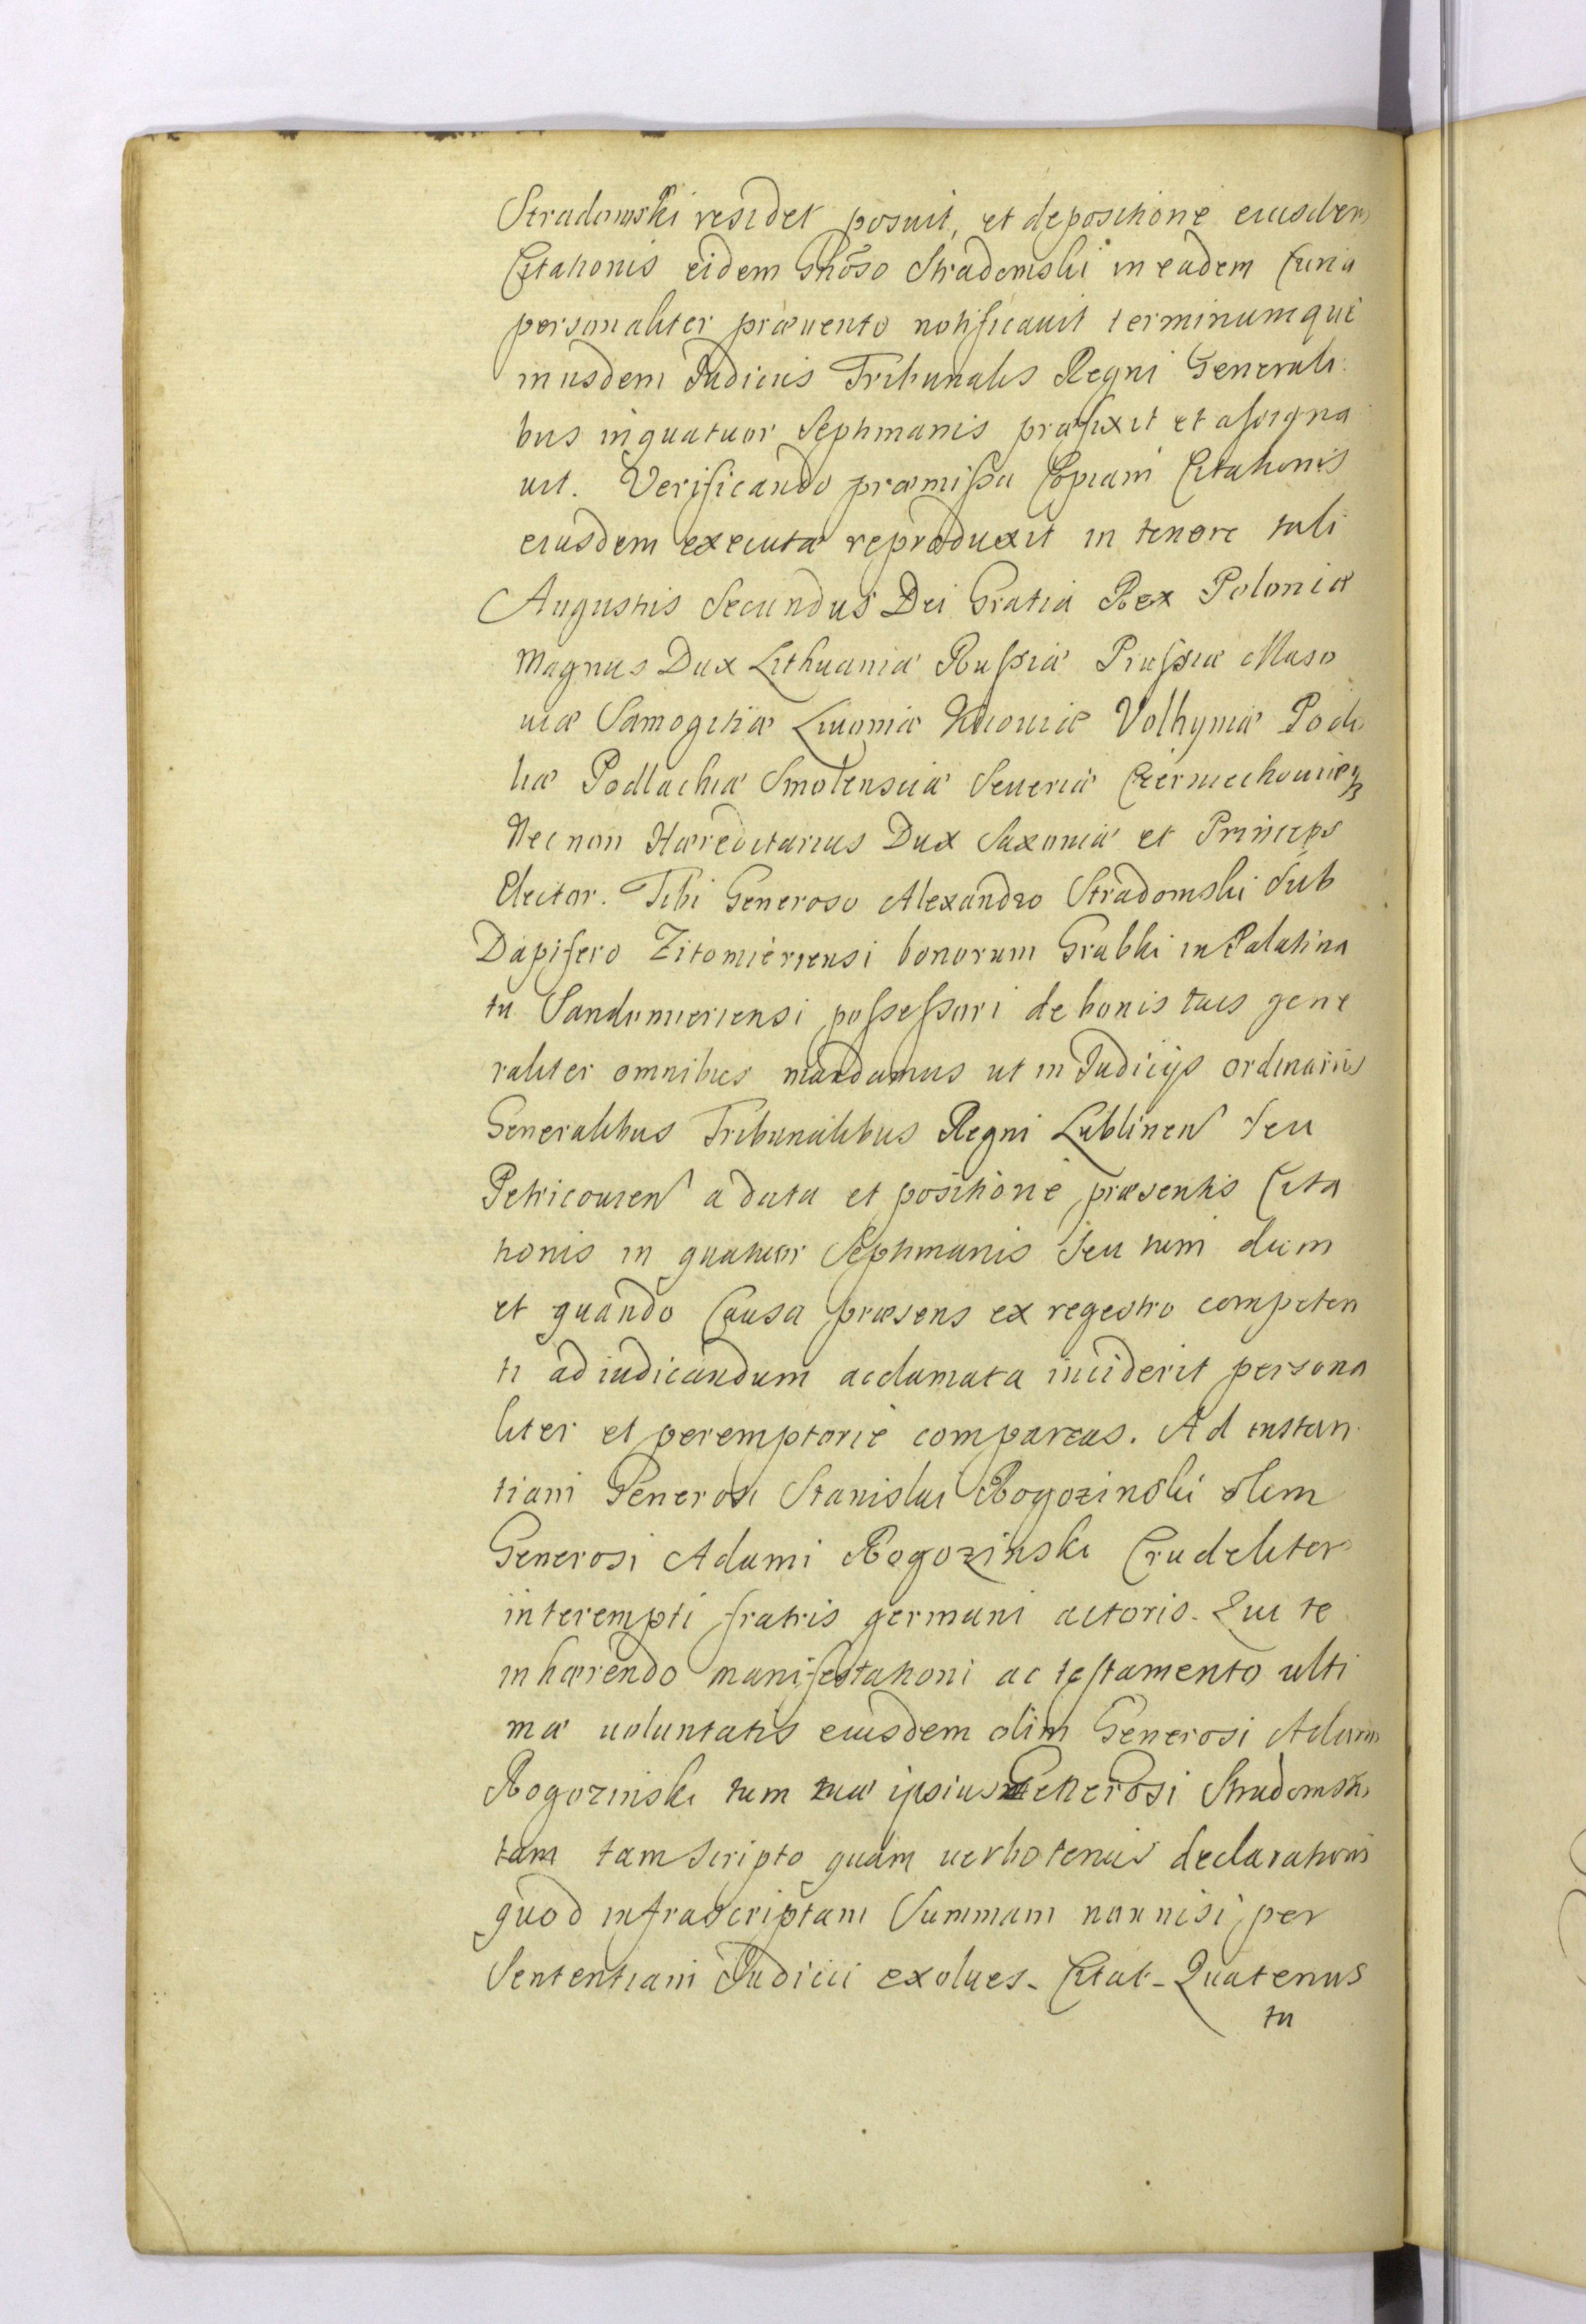 Stradomski residet posuit, et depositione eiusdem
Citationis eidem Gnõso Stradomski in eadem Curia
personaliter præuento notificauit terminumque
in iisdem Judiciis Tribunalis Regni Generali
bus in quatuor Septimanis præfixit et assigna
uit. Verificando præmissa Copiam Citationis
eiusdem executæ reproduxit in tenore tali
Augustus Secundus Dei Gratia Rex Poloniæ
Magnus Dux Lithuaniæ Russiæ Prussiæ Maso
uiæ Samogitiæ Liuoniæ Kiiouiæ Volhyniæ Podo
liæ Podlachiæ Smolensciæ Seueriæ Czerniechouięq
Necnon Hæreditarius Dux Saxoniæ et Princeps
Elector. Tibi Generoso Alexandro Stradomski Sub
Dapifero Zitomieriensi bonorum Grabki in Palatina
tu Sandomieriensi possessori de bonis tuis gene
raliter omnibus mandamus ut in Judicijs ordinariis
Generalibus Tribunalibus Regni Lublinen seu
Petricouien a data et positione præsentis Cita
tionis in quatuor Septimanis seu tum dum
et quando Causa præsens ex regestro competen
ti ad iudicandum acclamata inciderit persona
liter et peremptorie compareas. Ad instan
tiam Generosi Stanislai Rogozinski olim
Generosi Adami Rogozinski Crudeliter
interempti fratris germani actoris. Qui te
inhærendo manifestationi ac testamento ulti
mæ uoluntatis eiusdem olim Generosi Adami
Rogozinski tum tuæ ipsius Generosi Stradomski
tam tam scripto quam uerbotenus declarationi
quod infrascriptam Summam non nisi per
Sententiam Judicii exolues. Citat. Quatenus
tu